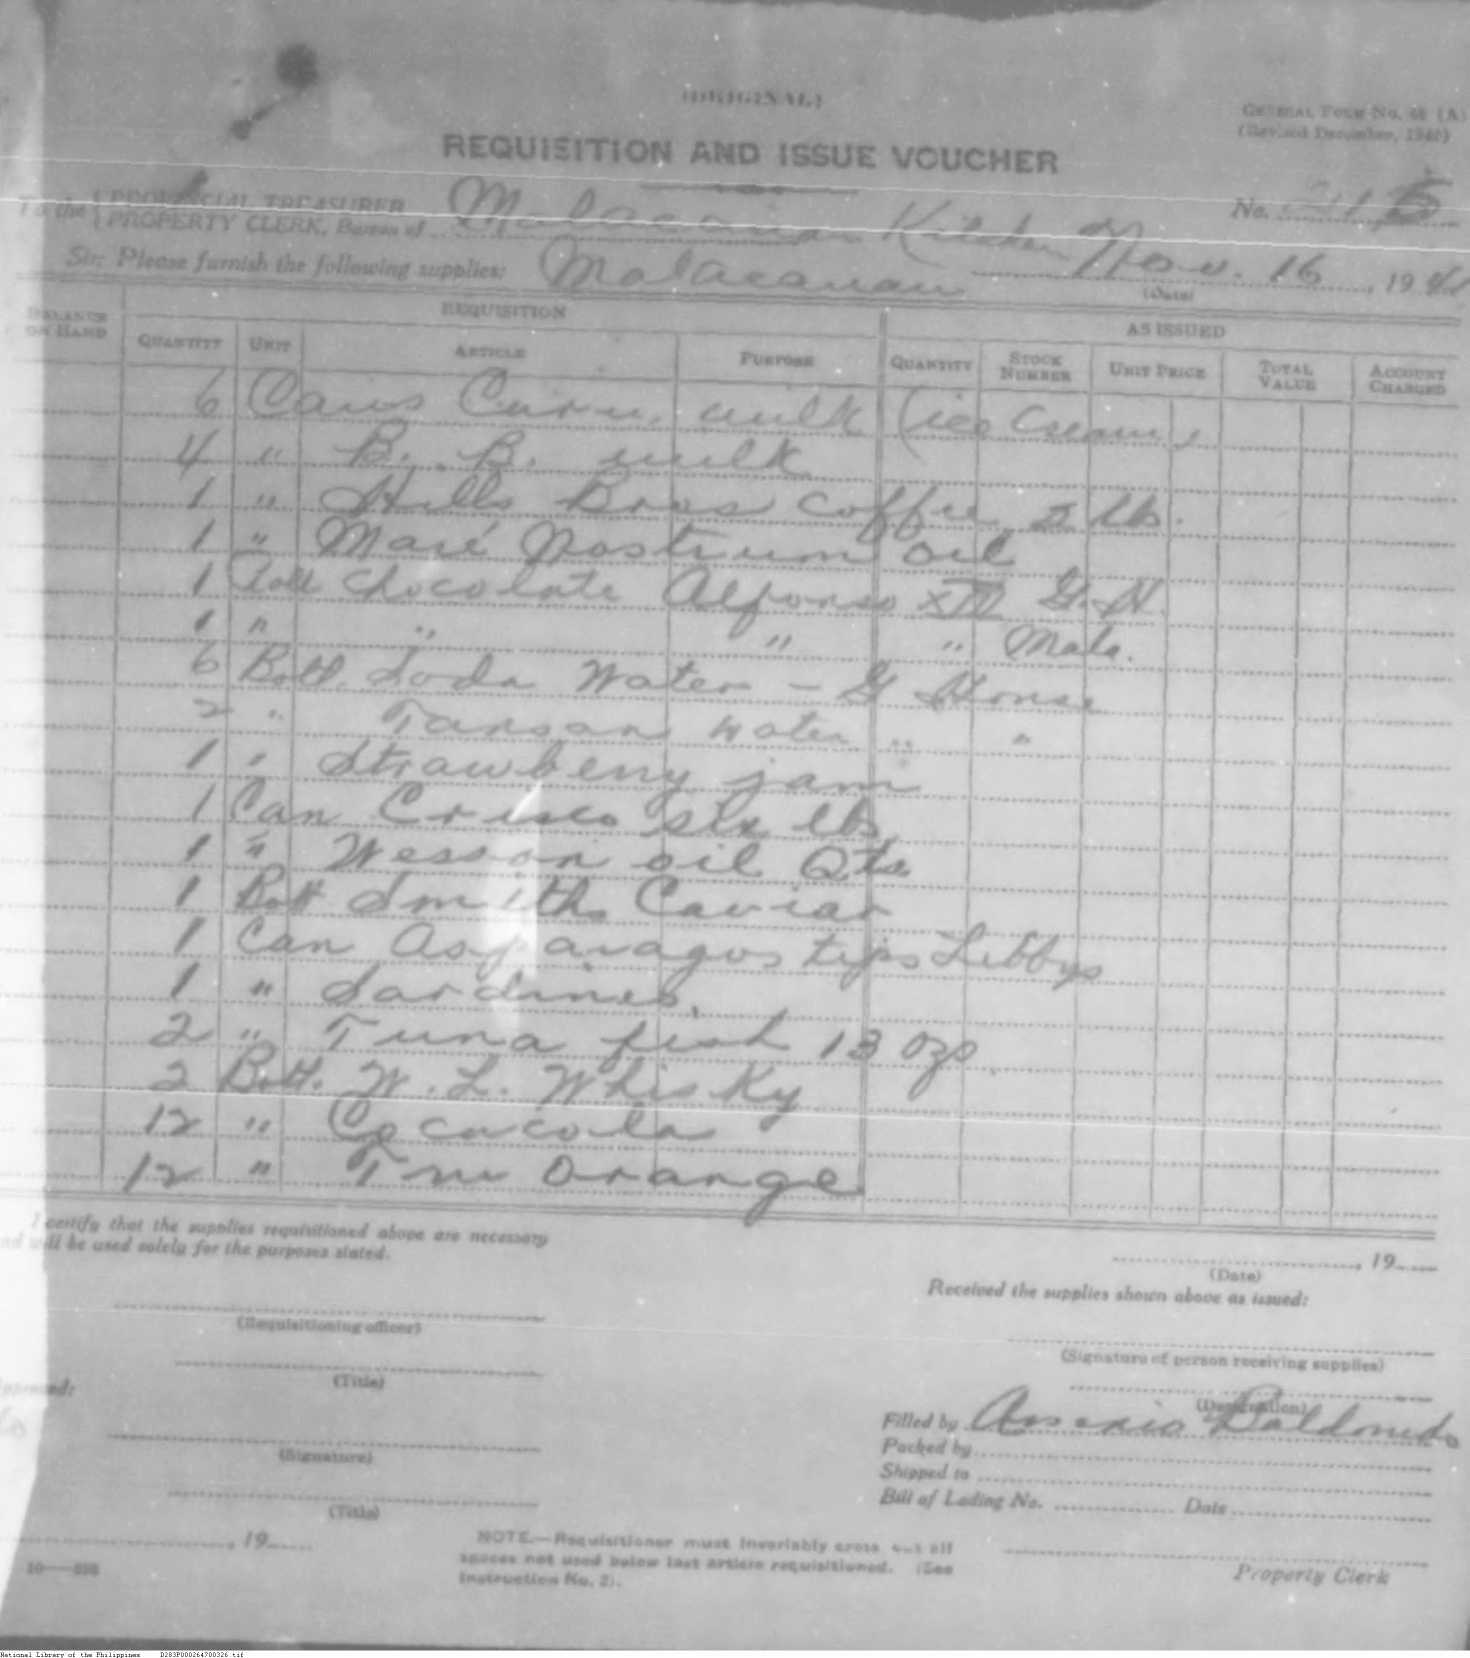 (ORIGINAL)
GENERAL FORM No. 48 (A)
(Revised December, 1940)
REQUISITION AND ISSUE VOUCHER
To the { PROVINCIAL TREASURER
PROPERTY CLERK, Bureau of Malacañan Kitchen
No.
Sir: Please furnish the following supplies: Malacañan Nov. 16, 19
(Date)
BALANCE ON HAND REQUISITION AS ISSUED
QUANTITY UNIT ARTICLE PURPOSE QUANTITY STOCK NUMBER UNIT PRICE TOTAL VALUE ACCOUNT CHARGED
6 Cans milk (ice cream)
4 " B. B. milk
1 " Hills Bros coffee 2 lb.
1 " Maré Nostrum oil
1 chocolate Alfonso G. H.
1 " " " " Mala.
6 Bott. Soda Water - G House
2 " Tansan water " "
1 " Strawberry jam
1 Can Crisco six lbs
1 " Wesson oil Qts
1 Bott Smiths Caviar
1 Can Asparagos tips Libbys
1 " Sardines.
2 " Tuna fish 13 ozs
2 Bott. W. L. Whisky
12 " Cocacola
12 " Tru Orange
I certify that the supplies requisitioned above are necessary
and will be used solely for the purposes stated.
(Requisitioning officer)
(Title)
Approved:
(Signature)
(Title)
, 19
10—898
NOTE.—Requisitioner must invariably cross out all
spaces not used below last article requisitioned. (See
Instruction No. 2).
, 19
(Date)
Received the supplies shown above as issued:
(Signature of person receiving supplies)
(Designation)
Filled by
Packed by
Shipped to
Bill of Lading No. Date
Property Clerk
National Library of the Philippines D283P000264700326.tif